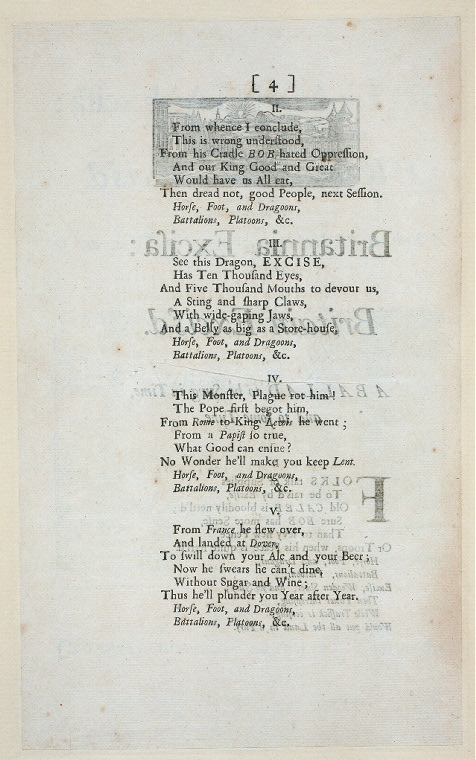 [ 4 ]
II.
From whence I conclude,
This is wrong understood,
From his Cradle BOB hated Oppreſſion,
And our King Good and Great
Would have us All eat,
Then dread not, good People, next Seſſion.
Horſe, Foot, and Dragoons,
Battalions, Platoons, &c.
III.
See this Dragon, EXCISE,
Has Ten Thouſand Eyes,
And Five Thouſand Mouths to devour us,
A Sting and ſharp Claws,
With wide-gaping Jaws,
And a Belly as big as a Store-houſe,
Horſe, Foot, and Dragoons,
Battalions, Platoons, &c.
IV.
This Monſter, Plague rot him!
The Pope firſt begot him,
From Rome to King Lewis he went;
From a Papiſt ſo true,
What Good can enſue?
No Wonder he'll make you keep Lent.
Horſe, Foot, and Dragoons,
Battalions, Platoons, &c.
V.
From France he flew over,
And landed at Dover,
To ſwill down your Ale and your Beer;
Now he ſwears he can't dine,
Without Sugar and Wine;
Thus he'll plunder you Year after Year.
Horſe, Foot, and Dragoons,
Battalions, Platoons, &c.